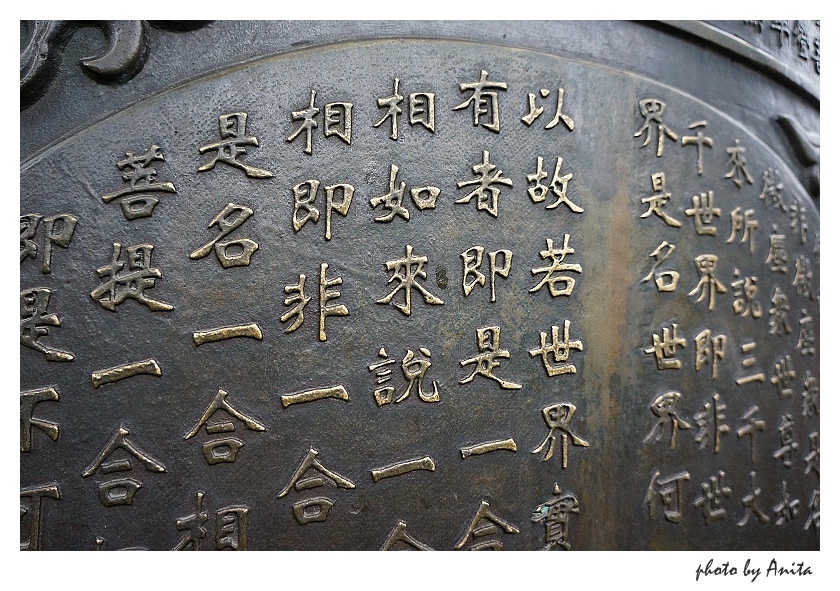 非微塵眾是名
微塵眾世尊如
來所說三千大
千世界即非世
界是名世界何
以故若世界實
有者即是一合
相如來說一合
相即非一合
是名一合相
菩提一合
即是不可
photo by Anita